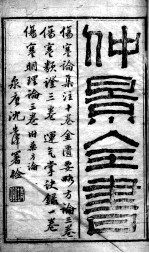 仲景全書
傷寒論集注十卷金匱要略方論三卷
傷寒類證三卷 運氣掌訣錄一卷
傷寒明理論三卷附藥方論
泉唐沈
署檢